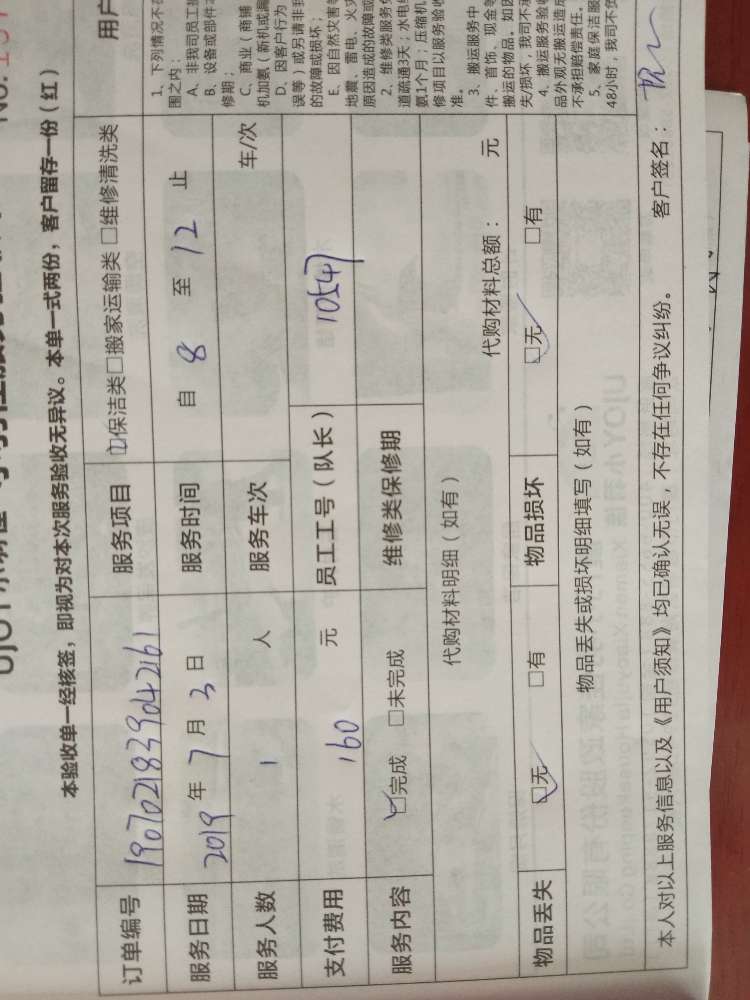 本验收单一经核签，即视为对本次服务验收无异议。本单一式两份，客户留存一份（红）
订单编号 190702183904042161 服务项目 ☑保洁类□搬家运输类 □维修清洗类
服务日期 2019 年 7 月 3 日 服务时间 自 8 至 12 止
服务人数 1 人 服务车次 车/次
支付费用 160 元 员工工号（队长） 10547
服务内容 ☑完成 □未完成 维修类保修期
代购材料明细（如有） 代购材料总额： 元
物品丢失 ☑无 □有 物品损坏 ☑无 □有
物品丢失或损坏明细填写（如有）
本人对以上服务信息以及《用户须知》均已确认无误，不存在任何争议纠纷。 客户签名：
No.
用户
1、下列情况不在
围之内：
A、非我司员工损
B、设备或部件
修期；
C、商业（商铺
机加氨（新机或漏
D、因客户行为
误等）或另请非我
的故障或损坏；
E、因自然灾害等
地震、雷电、火灾
原因造成的故障或
2、维修类服务免
道疏通3天；水电维
氨1个月；压缩机
修项目以服务验收
准。
3、搬运服务中
件、首饰、现金等
搬运的物品。如因
失/损坏，我司不承
4、搬运服务验收
品外观无搬运造成
不承担赔偿责任。
5、家庭保洁服
48小时，我司不负